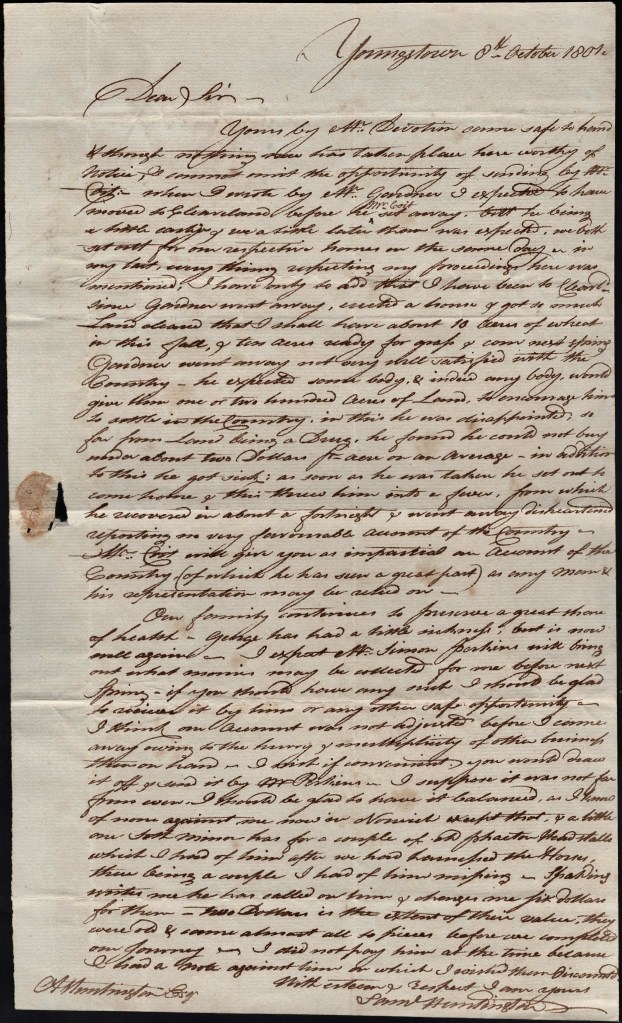 Youngstown 8th October 1801.
Dear Sir —
Yours by Mr. Devotion came safe to hand
& though nothing new has taken place here worthy of
Notice, I cannot omit the opportunity of sending by Mr.
Coit — when I wrote by Mr. Gardner I expected to have
moved to Cleaveland before he set away. but he being
Mr. Coit
a little earlier & we a little later than was expected, we both
set out for our respective homes on the same day & in
my last, every thing respecting my proceedings here was
mentioned, I have only to add that I have been to Cleavd.
since Gardner went away, erected a house & got so much
Land cleared that I shall have about 10 Acres of wheat
in this fall, & ten acres ready for grass & corn next spring
Gardner went away not very well satisfied with the
Country — he expected some body, & indeed any body, would
give him one or two hundred Acres of Land, to encourage him
to settle in the Country, in this he was disappointed; so
far from Land being a Drug, he found he could not buy
under about two Dollars pr. acre on an Average — in addition
to this he got sick; as soon as he was taken he set out to
come home & this threw him into a fever, from which
he recovered in about a fortnight & went away disheartened
reporting no very favourable account of the Country —
Mr. Coit will give you as impartial an Account of the
Country (of which he has seen a great part) as any man &
his representation may be relied on —
Our family continues to preserve a great share
of health — George has had a little sickness, but is now
well again — I expect Mr. Simon Perkins will bring
out what monies may be collected for me before next
Spring — if you should have any such I should be glad
to receive it by him or any other safe opportunity —
I think our Account was not adjusted before I came
away owing to the hurry & multiplicity of other business
then on hand — I wish if convenient, you would draw
it off & send it by Mr Perkins — I suppose it was not far
from even. I should be glad to have it balanced, as I know
of none against me now in Norwich except that, & a little
one Soth minor has for a couple of old phaeton Head stalls
which I had of him after we had harnessed the Horses,
there being a couple I had of him missing — Spalding
writes me he has called on him & charges me six dollars
for them — two Dollars is the extent of their value, they
were old & came almost all to pieces before we completed
our Journey — I did not pay him at the time because
I had a Note against him on which I wished them discounted
With esteem & respect I am yours
A Huntington Esqr
Saml Huntington